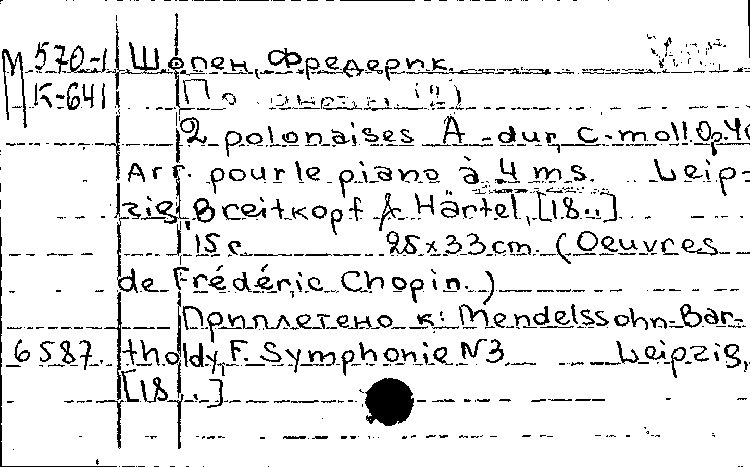 М 570-1 Шопен, Фредерик.
К-641 По (2)
2 polonaises A-dur, c-moll. Op.40
Arr. pour le piano à 4 ms. Leip-
zig, Breitkopf & Härtel, [18..]
15 c. 25x33 cm. (Oeuvres
de Frédéric Chopin.)
Приплетено к: Mendelssohn-Bar-
6587. tholdy, F. Symphonie N3 Leipzig,
[18..]